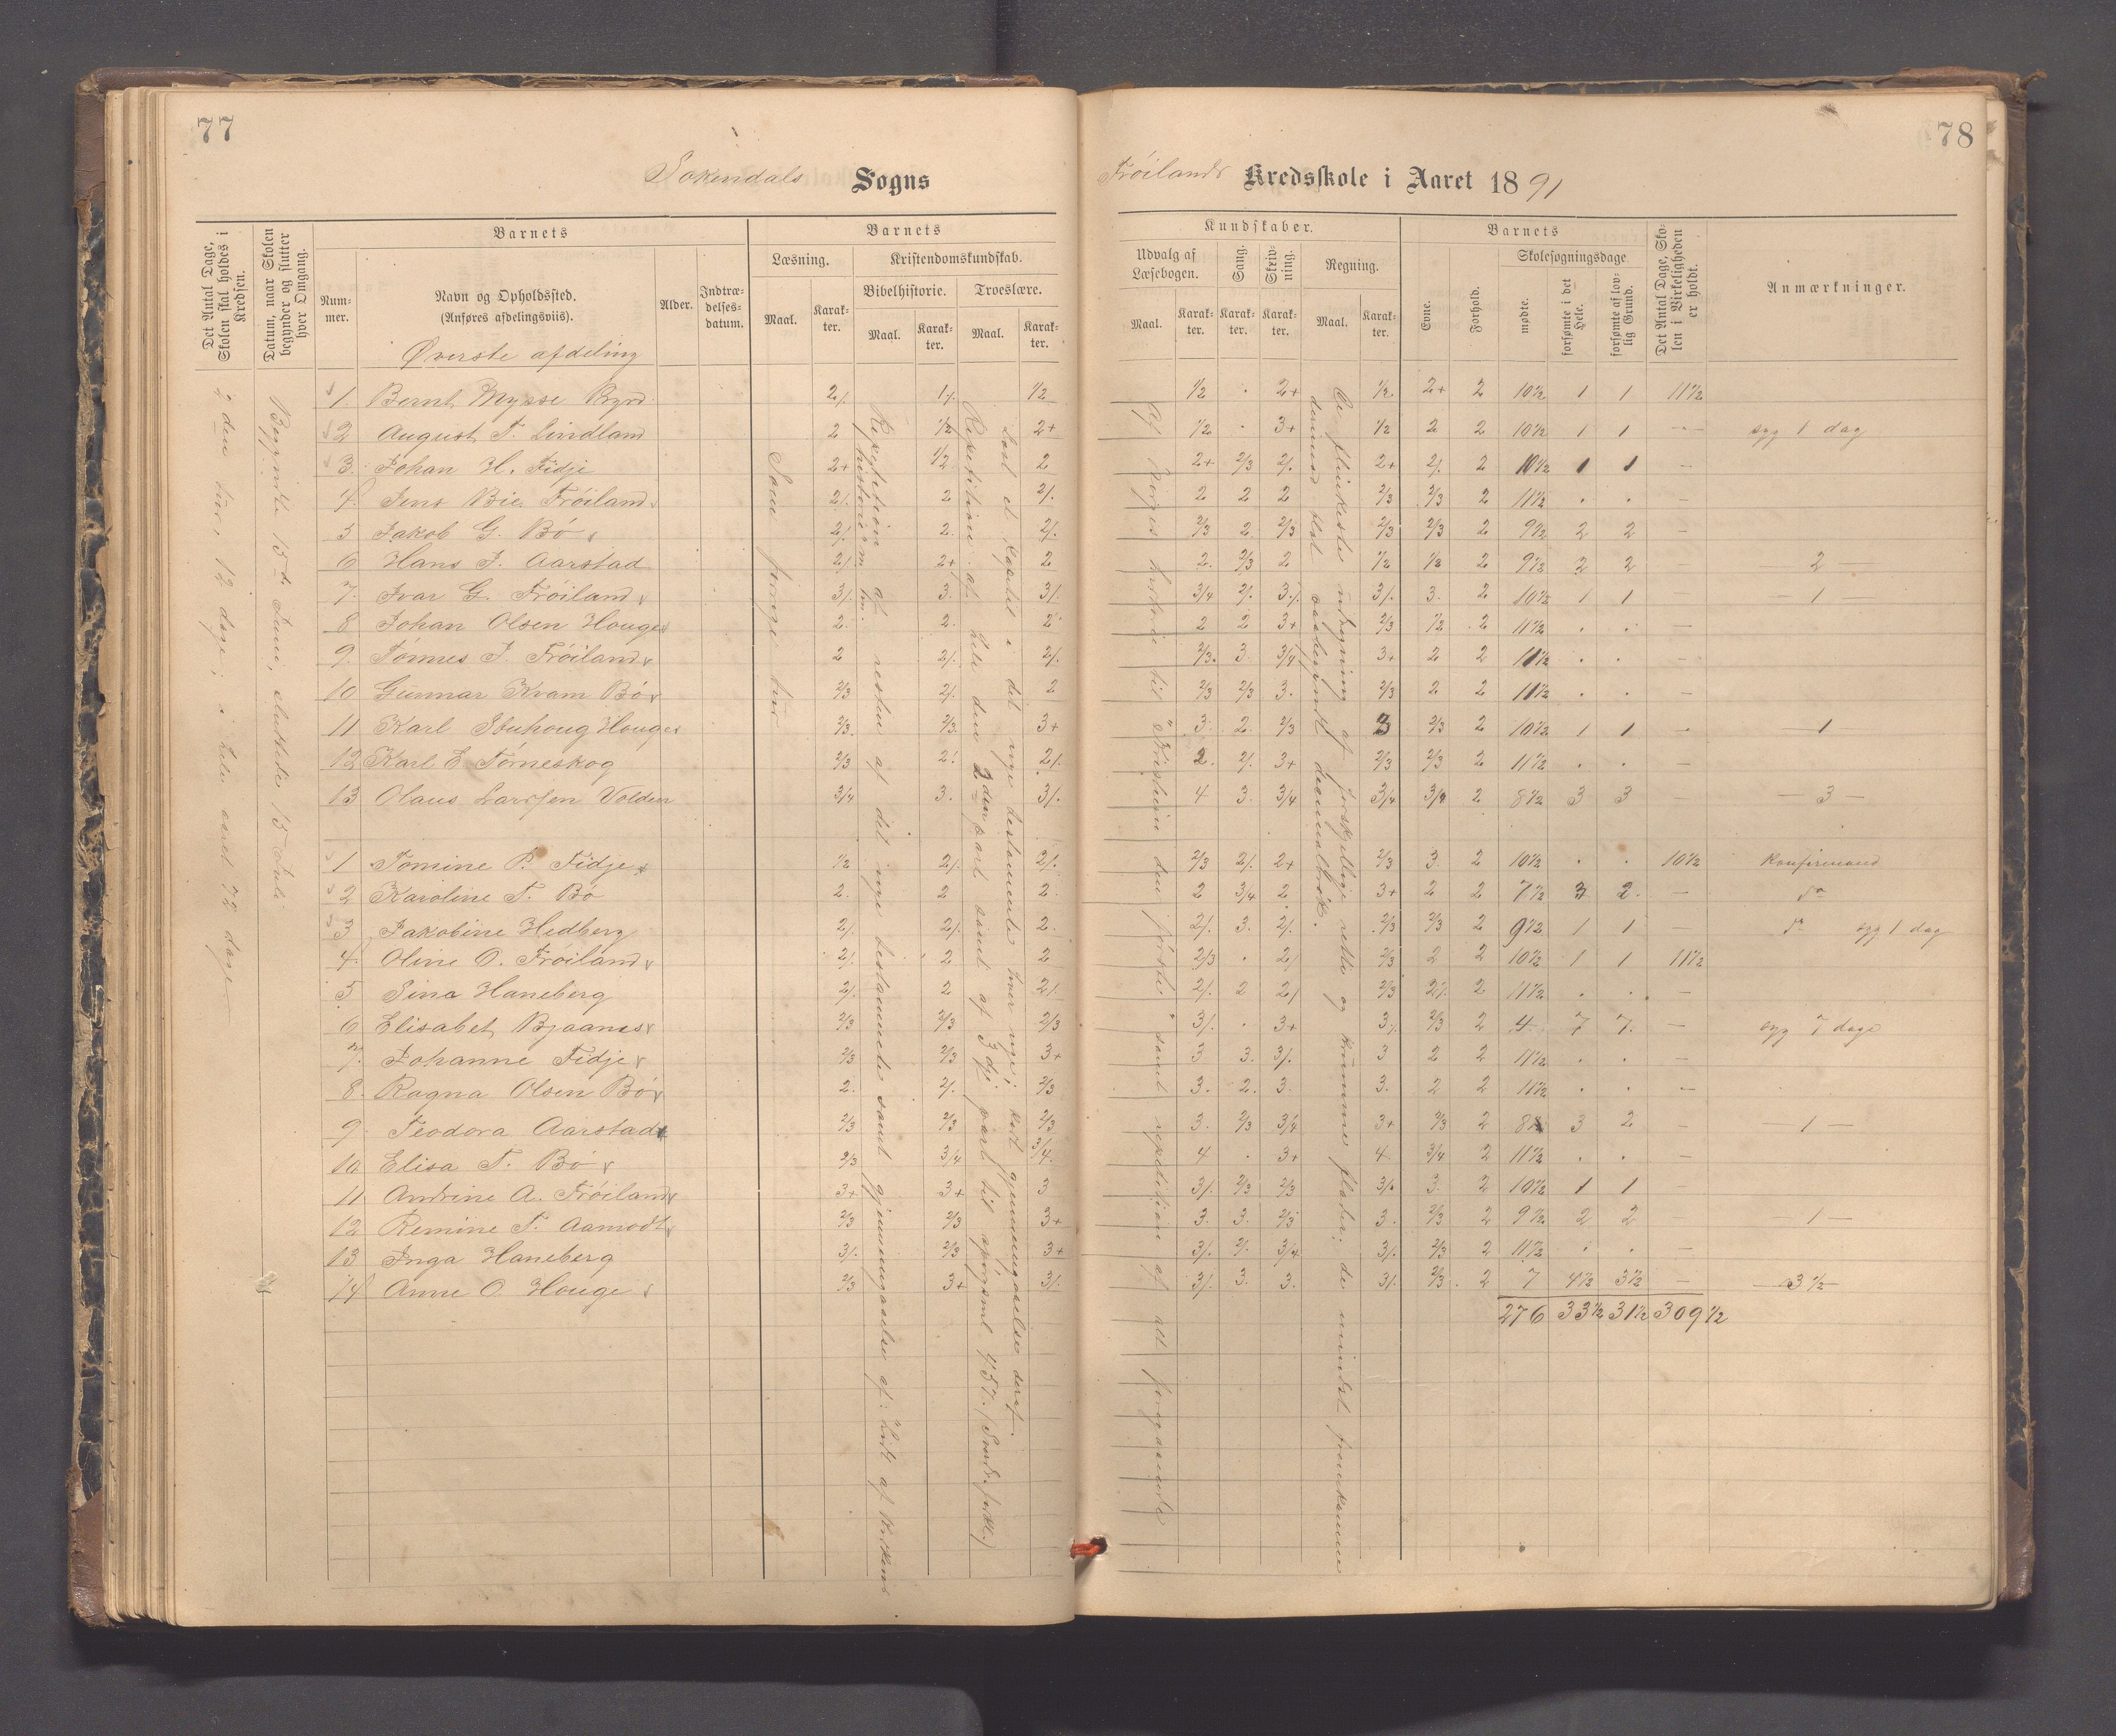 77
78
Sokendals Sogns
Fröilands Kredsskole i Aaret 1891
Det Antal Dage, Skolen skal holdes i Kredsen.
Datum, naar Skolen begynder og slutter hver Omgang.
Barnets
Nummer.
Navn og Opholdssted. (Anføres afdelingsviis).
Alder.
Indtrædelsesdatum.
Barnets
Læsning.
Maal.
Karakter.
Kristendomskundskab.
Bibelhistorie.
Maal.
Karakter.
Troeslære.
Maal.
Karakter.
Kundskaber.
Udvalg af Læsebogen.
Maal.
Karakter.
Sang.
Karakter.
Skrivning.
Karakter.
Regning.
Maal.
Karakter.
Barnets
Evne.
Forhold.
Skolesøgningsdage.
mødte.
forsømte i det Hele.
forsømte af lovlig Grund.
Det Antal Dage, Skolen i Virkeligheden er holdt.
Anmærkninger.
Øverste afdeling
12 dage i hele aaret 72 dage
Begyndte 15de Juni, sluttede 15 Juli
Som forrige tur
Repetition af resten af det nye testamente samt gjennemgaaelse af:
Repetition af hele den 2den part samt af 3dje part til spörgsml 457.
Læst et Kapitel i det nye testamente hver uge;
Af Norges historie til "Kristian den förste" samt repetition af det foregaaende
De flinkeste udregning af forskjellige rette og krumme flader; de mindst fremkomne
1. Bernt Mysse Byrd 2/. 1/. 1/2 1/2 . 2+ 1/2 2+ 2 10 1/2 1 1 11 1/2
2 August T. Lindland 2 1/2 2+ 1/2 . 3+ 1/2 2 2 10 1/2 1 1 — syg 1 dag
3. Johan H. Fidje 2+ 1/2 2 2+ 2/3 2/. 2+ 2/. 2 10 1/2 1 1 —
4. Jens Bie Fröiland 2/. 2 2/. 2 2 2 2/3 2/3 2 11 1/2 . . —
5 Jakob G. Bö 2/. 2. 2/. 2/3 2. 2/3 2/3 2/3 2 9 1/2 2 2 —
6 Hans J. Aarstad 2/. 2+ 2 2. 2/3 2 1/2 1/2 2 9 1/2 2 2 — — 2 —
7. Ivar G. Fröiland 3/. 3. 3/. 3/4 2/. 3/. 3/. 3. 2 10 1/2 1 1 — — 1 —
8 Johan Olsen Houge 2. 2. 2 2 2 3+ 2/3 1/2 2 11 1/2 . . —
9. Tönnes J. Fröiland 2 2/. 2/. 2/3. 3. 3/4 3+ 2 2 11 1/2 . . —
10 Gunnar Kvam Bö 2/3 2/. 2 2/3 2/3 3. 2/3 2 2 11 1/2 . . —
11 Karl Stuhoug Houge 2/3. 2/3. 3+ 3. 2. 2/3 3 2/3 2 10 1/2 1 1 — — 1 —
12 Karl E. Törneskog 2/3 2/. 2/. 2. 2/. 3+ 2/3 2/3 2 11 1/2 . . —
13 Olaus Larssen Volden 3/4 3. 3/. 4 3. 3/4 3/4 3/4 2 8 1/2 3 3 — — 3 —
1 Tomine P. Fidje 1/2 2/. 2/. 2/3 2/. 2+ 2/3 3. 2 10 1/2 . . 10 1/2 Konfirmand
2 Karoline T. Bö 2. 2 2. 2 3/4 2 3+ 2 2 7 1/2 3 2. — do
3 Jakobine Hedberg 2/. 2/. 2. 2/. 3. 2/. 2/3 2/3 2 9 1/2 1 1 — do syg 1 dag
4. Oline O. Fröiland 2/. 2 2 2/3 . 2/ 2/3 2 2 10 1/2 1 1 11 1/2
5 Sina Haneberg 2/. 2 2/. 2/. 2 2/ 2/3 2/. 2 11 1/2 . . —
6 Elisabet Bjaanes 2/3 2/3 2/3 3/. . 3+ 3/. 2/3 2 4 7 7. — syg 7 dage
7. Johanne Fidje 2/3 2/3 3+ 3 3. 3/. 3 2 2 11 1/2 . . —
8. Ragna Olsen Bö 2. 2/. 2/3 3. 2. 3. 3. 2 2 11 1/2 . . —
9. Teodora Aarstad 2/3 2/3 2/3 3. 2/3 3/4 3+ 2/3 2 8 3 2 — — 1 —
10 Elisa T. Bö 2/3 3/4 3/4. 4 . 3+ 4 3/4 2 11 1/2 . . —
11. Andrine A. Fröiland 3+ 3+ 3 3/. 2/3 2/3 3/. 3. 2 10 1/2 1 1 —
12 Remine T. Aamodt 2/3 2/3 3+ 3. 3. 2/3 3. 2/3 2 9 1/2 2 2 — 1 —
13 Inga Haneberg 3/. 2/3 3+ 3/. 2/. 3/4 3/. 2/3 2 11 1/2 . . —
14 Anne O. Houge 2/3 3+ 3/. 3/. 3. 3. 3/. 2/3. 2 7 4 1/2 3 1/2 — — 3 1/2 —
276 33 1/2 31 1/2 309 1/2